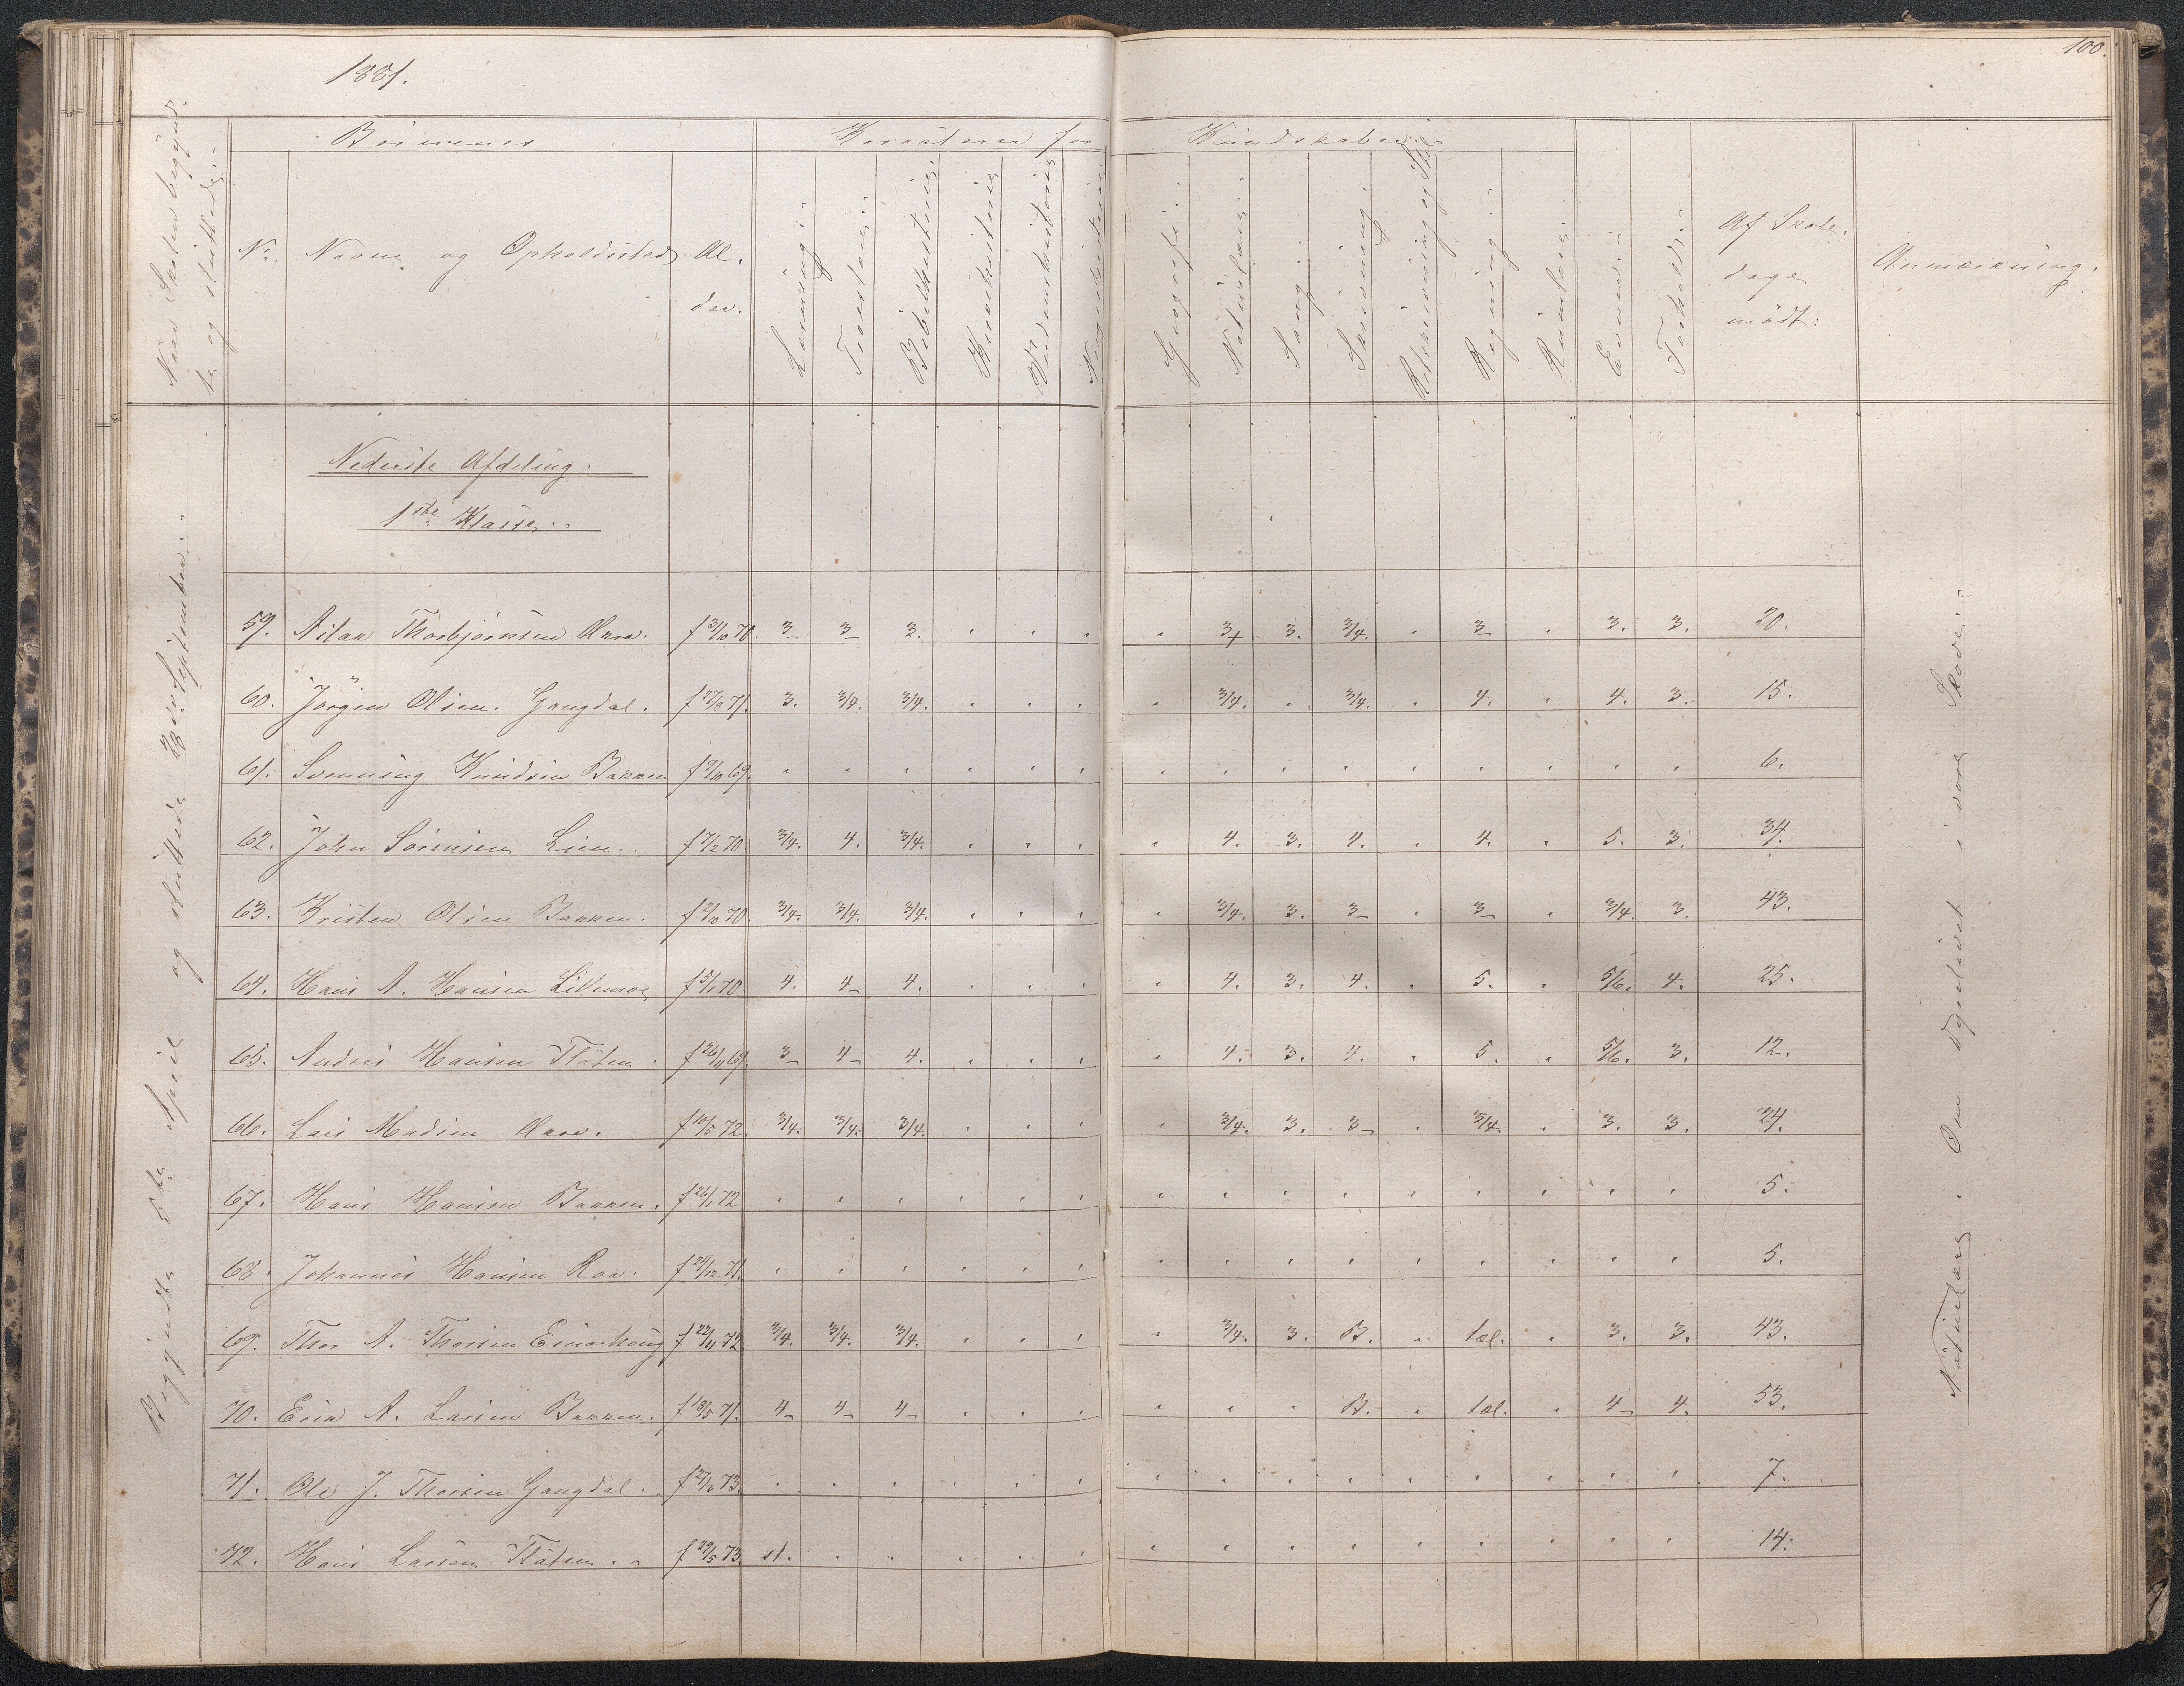 1881.
100.
Naar Skolen begynd-
te og sluttede.
Børnenes
Karakterer for
Kundskaber
No.
Navne og Opholdssted
Al-
der.
Læsning.
Troeslære.
Bibelhistorie
Kirkehistorie
Verdenshistorie
Geografi.
Naturlære.
Sang
Skrivning.
Retskrivning og Stil
Regning.
Evner.
Forhold.
Af Skole-
dage
mödt:
Anmærkning.
Nederste Afdeling.
1ste Klasse.
Begyndte 5te April og sluttede 28de September.
59. Aslak Thorbjørnsen Aara. f 31/10 70. 3- 3- 3. 3+ 3. 3/4. 3- 3. 3. 20.
60. Jörgen Olsen Gangdal. f 27/3 71. 3. 3/4. 3/4. 3/4. 3/4. 4. 4. 3. 15.
61. Svenning Knudsen Bakken f 9/10 69. 6.
62. John Sörensen Lien. f 7/2 70 3/4. 4. 3/4. 4. 3. 4. 4. 5. 3. 34.
63. Kristen Olsen Bakken. f 2/10 70. 3/4. 3/4. 3/4. 3/4. 3. 3- 3- 3/4. 3. 43.
64. Hans A. Hansen f 5/1 70 4. 4- 4. 4. 3. 4. 5. 5/6. 4. 25.
65. Anders Hansen Flåten. f 26/11 69. 3- 4- 4. 4. 3. 4. 5. 5/6. 3. 12.
66. Lars Madsen Aara. f 10/5 72. 3/4. 3/4. 3/4. 3/4. 3. 3- 3/4. 3. 3. 24.
67. Hans Hansen Bakken. f 26/1 72 5.
68. Johannes Hansen Raa. f 24/12 71. 5.
69. Thor A. Thorsen Einarhaug f 22/11 72. 3/4. 3/4. 3/4. 3/4. 3. B. tæl. 3. 3. 43.
70. Erik A. Larsen Bakken. f 18/5 71. 4- 4- 4- B. tæl. 4- 4. 53.
71. Ole J. Thorsen Gangdal. f 27/3 73. 7.
72. Hans Larsen Flåten. f 29/5 73. st. 14.
Naturlære. Om Dyrelivet i vore Skove.